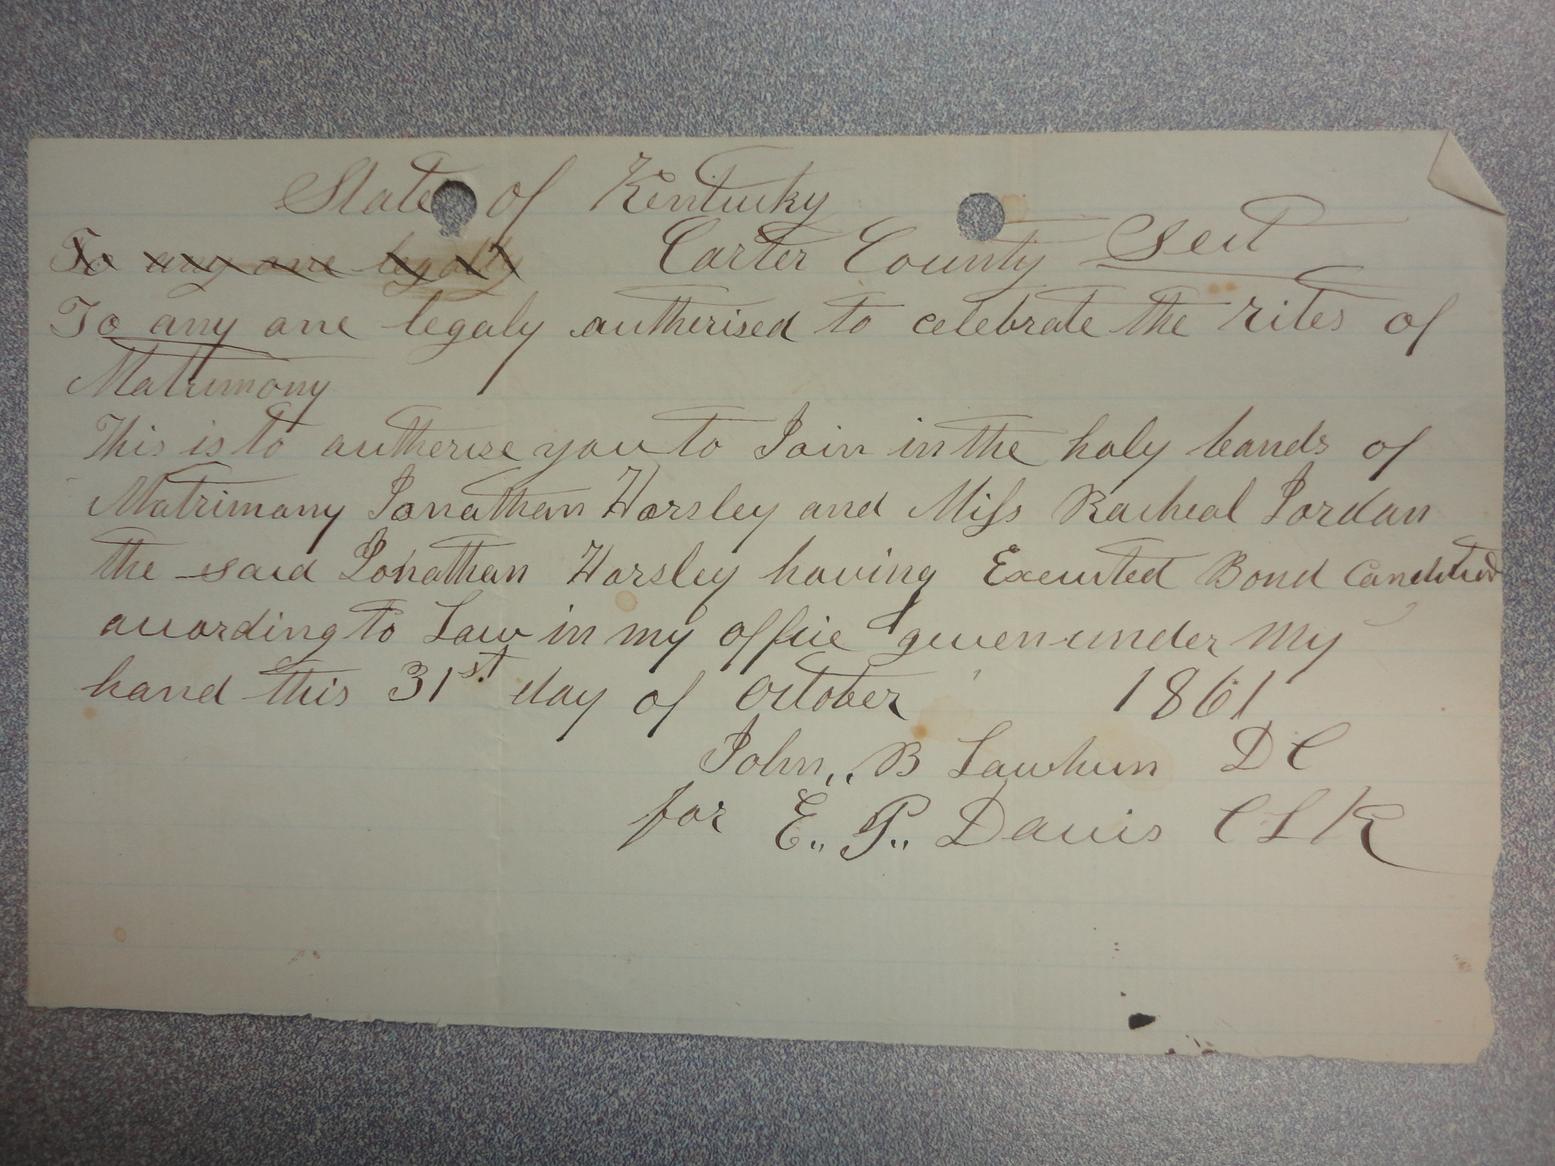 State of Kentucky
To any one legally Carter County Sect
To any one legaly autherised to celebrate the rites of
Matrimony
This is to autherise you to Join in the holy bands of
Matrimony Jonathan Horsley and Miss Racheal Jordan
the said Jonathan Horsley having Executed Bond Conditied
according to Law in my office given under My
hand this 31st day of October 1861
John B Lawhun DC
for E. P. Davis CLK